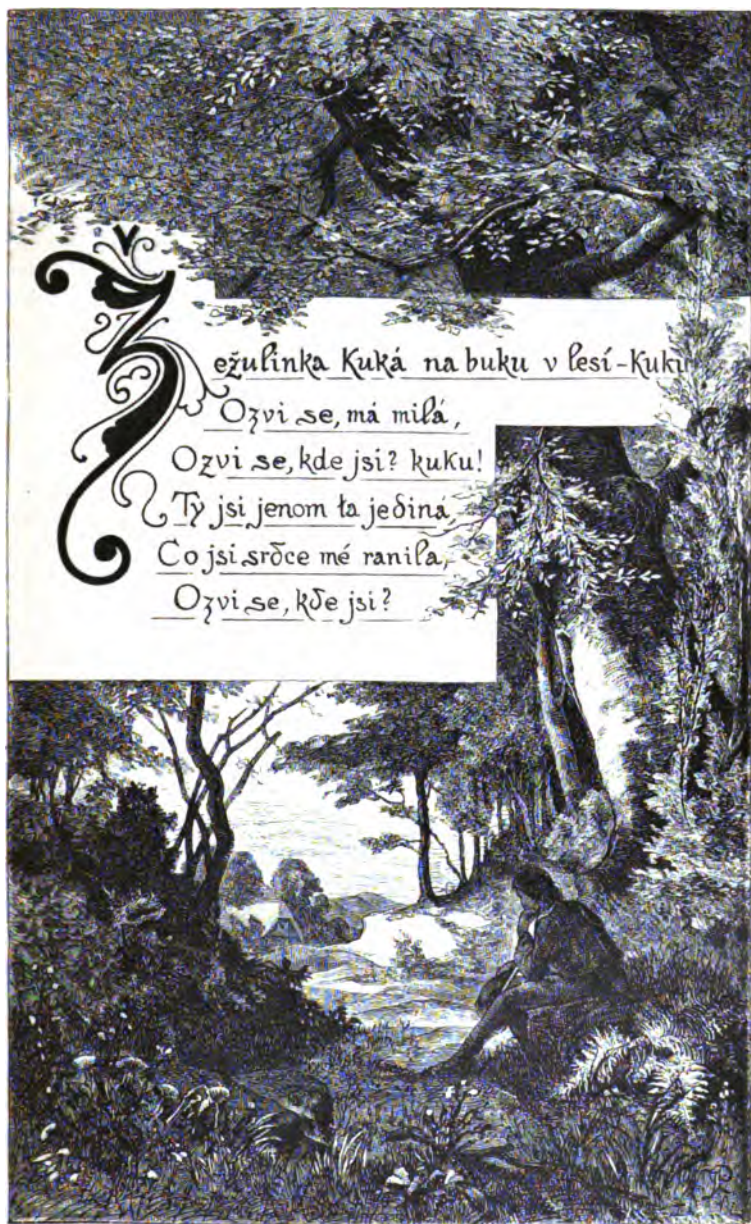 Žežulinka Kuká na buku v lesí-Kuku
Ozvi se, má milá,
Ozvi se, kde jsi? kuku!
Ty jsi jenom ta jediná
Co jsi srdce mé ranila,
Ozvi se, kde jsi?